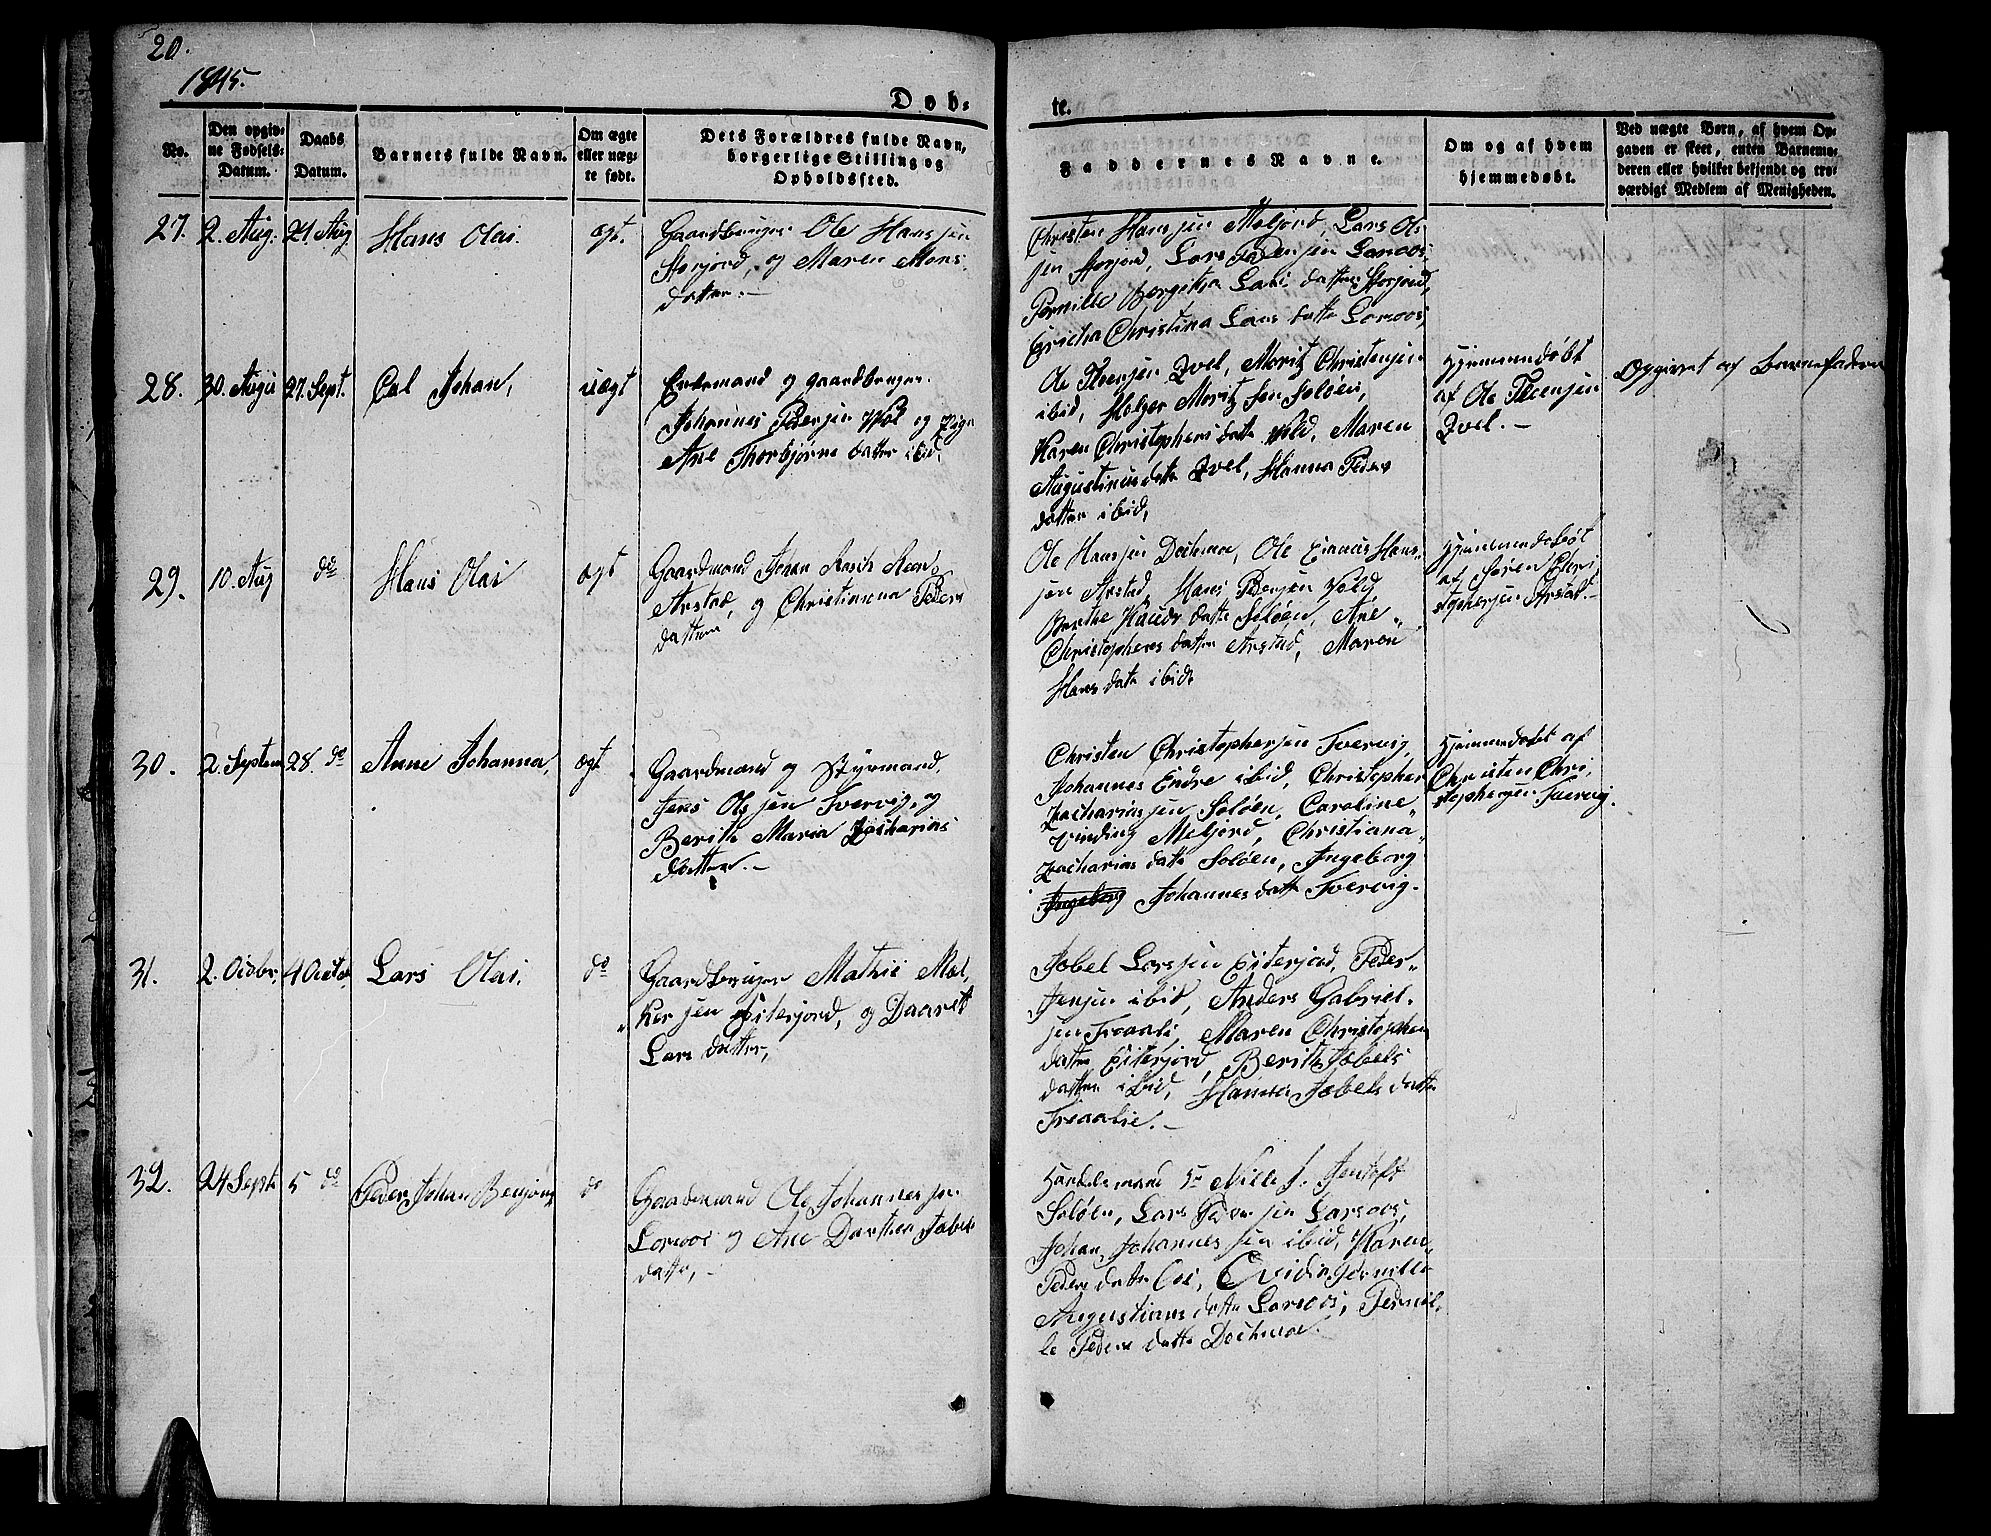 20.
1845.
Døb-
te.
No.
Den opgiv-
ne Fødsels-
Datum.
Daabs
Datum.
Barnets fulde Navn.
Om ægte
eller uæg-
te født.
Dets Forældres fulde Navn,
borgerlige Stilling og
Opholdssted.
Faddernes Navne.
Om og af hvem
hjemmedøbt.
Ved uægte Børn, af hvem Op-
gaven er skeet, enten Barnemo-
deren eller hvilket bekjendt og tro-
værdigt Medlem af Menigheden.
27. 2. Aug. 24 Aug Hans Olai. ægt.
Gaardbruger Ole Hanssen
Storjord, og Maren Mons
datter.-
Christen Hanssen Meljord, Lars Ol-
sen Storjord, Lars Pedersen Larsos,
Pernille Bergitha Lars datter Storjord,
Christina Lars datte Larsos,
28. 30. Augu 27. Sept. Carl Johan, uægt
Enkemand og gaardbruger
Johannes Pedersen Vold og Pige
Ane Thorbjørns datter ibid,
Ole Steensen Qvel, Moritz Christensen
ibid, Holger Moritz Søn Soløen,
Karen Christophers datte Vold, Maren
Augustinus datte Qvel, Hanna Peders
datter ibid,
Hjemmedøbt
af Ole Steensen
Qvel.-
Opgivet af Barnefaderen
29. 10. Aug do Hans Olai ægt
Gaardmand Johan
Arstad, og Christianna Peders
datter
Ole Hanssen Dochmo, Ole Hans-
sen Arstad, Hans Pedersen Vold,
Berthe datte Soløen, Ane
Christophers datter Arstad, Maren
Hans datte ibid.
Hjemmedøbt
af Søren Chri
stophersen Arstad.-
30. 2. Septem 28. do Anne Johanna, ægt
Gaardmand og Styrmand,
Jens Olssen Tvervig, og
Berith Maria Zacharias
datter.-
Christen Christophersen Tvervig,
Johannes Endre ibid, Christopher
Zachariassen Soløen, Caroline
Vinding Meljord, Christiana
Zacharias datte Soløen, Ingeborg
Ingeborg Johannes datte Tvervig.
Hjemmedøbt af
Christen Chri
stophersen Tvervig.
31. 2. Octobr. 4 Octob. Lars Olai. do
Gaardbruger Mathis Mel,
kersen Eiterjord, og Daaret
Lars datter,
Jobel Larssen Eiterjord, Peder
Jensen ibid, Anders Gabriel-
sen Troaali, Maren Christophers
datter Eiterjord, Berith Jobels
datter ibid, Hanna Jobels datte
Troaalie.-
32. 24 Sept. 5 do Peder Johan Benjam. do
Gaardmand Ole Johannessen
Larsos og Ane Dorthea Jobels
datte,-
Handelsmand Sr Nills J. Jentoft
Soløen, Lars Pedersen Larsos,
Johan Johannessen ibid, Karen
Peders datte Pernille
Augustinus datte Larsos, Pernil-
le Peders datte Dochmo.